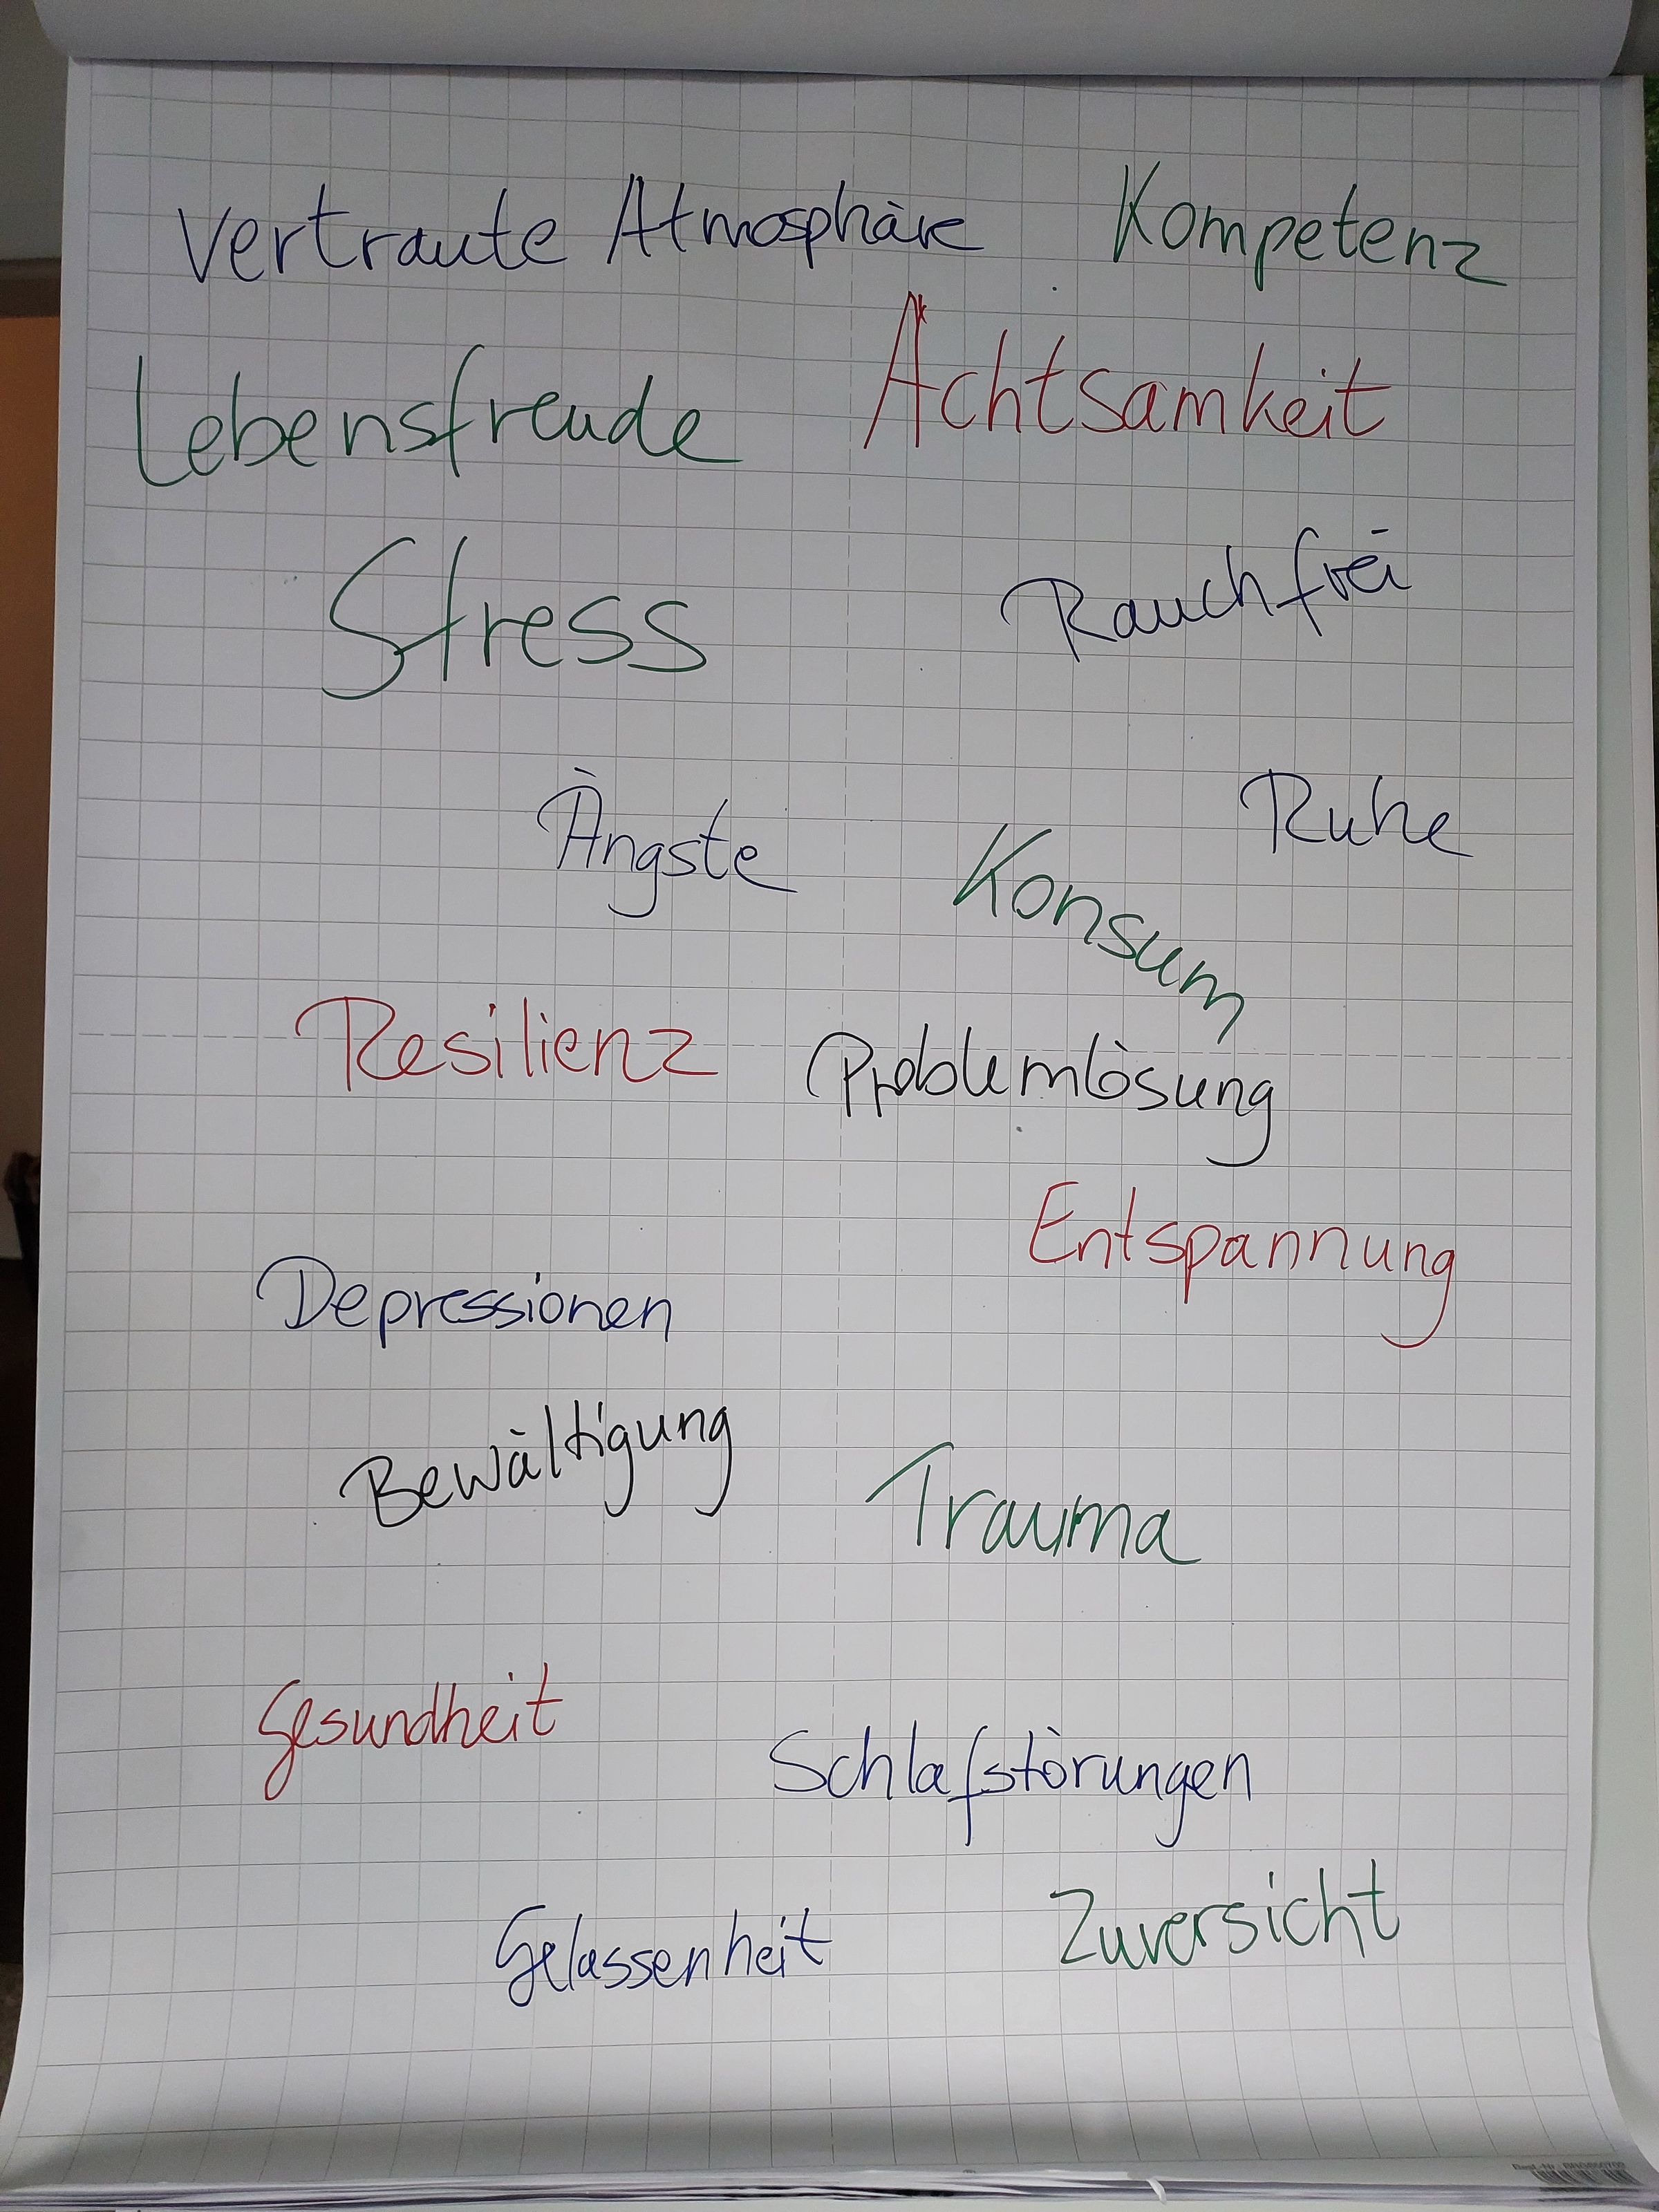 Vertraute Atmosphäre Kompetenz
Lebensfreude Achtsamkeit
Stress Rauchfrei
Ängste Ruhe
Konsum
Resilienz Problemlösung
Entspannung
Depressionen
Bewältigung Trauma
Gesundheit
Schlafstörungen
Gelassenheit Zuversicht